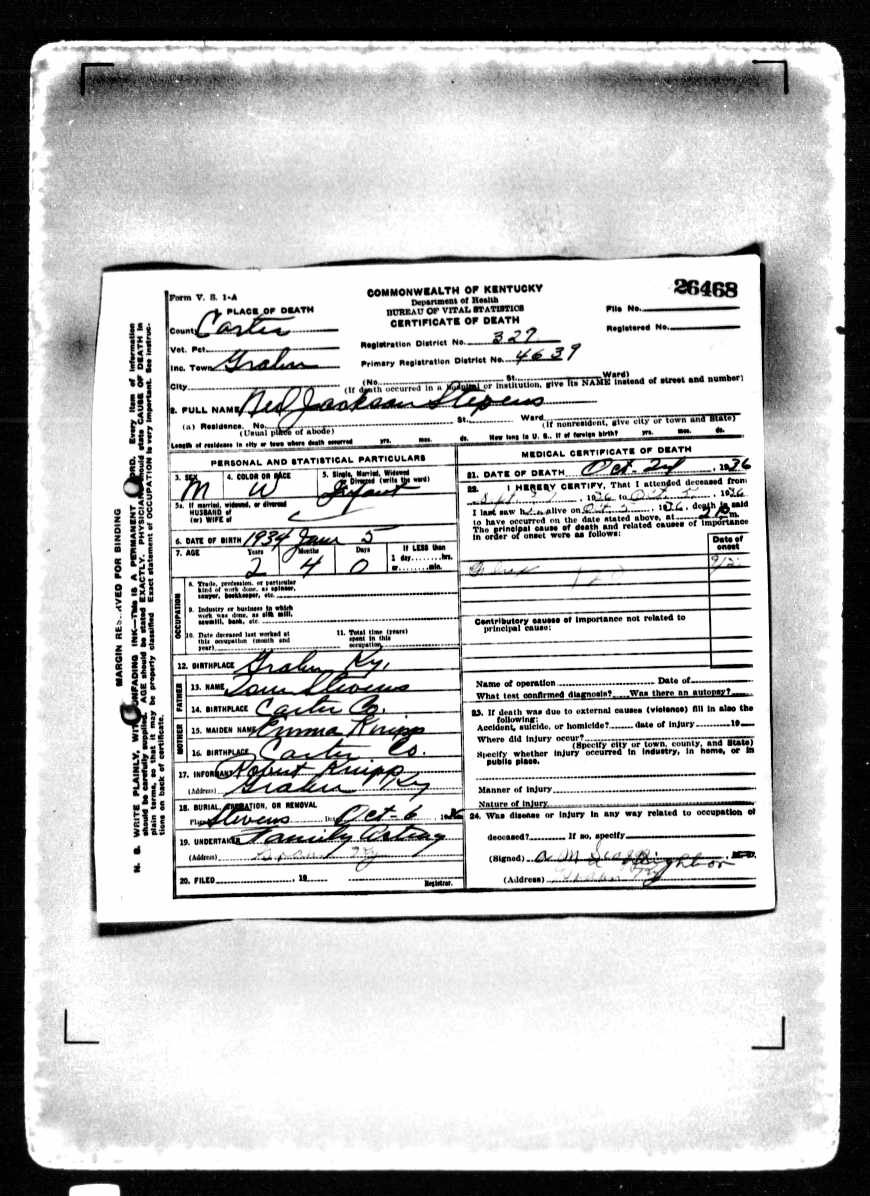 26468
Form V. S. 1-A
COMMONWEALTH OF KENTUCKY
Department of Health
BUREAU OF VITAL STATISTICS
CERTIFICATE OF DEATH
File No.
Registered No.
PLACE OF DEATH
County Carter
Vot. Pct.
Inc. Town Grahn
City
Registration District No. 327
Primary Registration District No. 4639
(No. St. Ward)
(If death occurred in a hospital or institution, give its NAME instead of street and number)
2. FULL NAME Ned Jackson Stepens
(a) Residence. No. St. Ward
(Usual place of abode) (If nonresident, give city or town and State)
Length of residence in city or town where death occurred yrs. mos. ds. How long in U. S., if of foreign birth? yrs. mos. ds.
PERSONAL AND STATISTICAL PARTICULARS
3. SEX M
4. COLOR OR RACE W
5. Single, Married, Widowed
Divorced (write the word)
Infant
5a. If married, widowed, or divorced
HUSBAND of
(or) WIFE of
6. DATE OF BIRTH 1934 5
7. AGE Years Months Days If LESS than
1 day hrs.
or min.
2 4 0
OCCUPATION
8. Trade, profession, or particular
kind of work done, as spinner,
sawyer, bookkeeper, etc.
9. Industry or business in which
work was done, as silk mill,
sawmill, bank, etc.
10. Date deceased last worked at
this occupation (month and
year)
11. Total time (years)
spent in this
occupation
12. BIRTHPLACE Grahn Ky.
FATHER
13. NAME Stevens
14. BIRTHPLACE Carter Co.
MOTHER
15. MAIDEN NAME Emma Knipp
16. BIRTHPLACE Carter Co.
17. INFORMANT Robert Knipp
(Address) Grahn Ky
18. BURIAL, CREMATION, OR REMOVAL
Place Stevens Date Oct-6 1936
19. UNDERTAKER Family Acting
(Address) Grahn Ky
20. FILED 19
Registrar.
MEDICAL CERTIFICATE OF DEATH
21. DATE OF DEATH Oct. , 1936
22. I HEREBY CERTIFY, That I attended deceased from
Sept , 1936 to Oct. , 1936
I last saw h alive on Oct. , 1936, death is said
to have occurred on the date stated above, at m.
The principal cause of death and related causes of importance
in order of onset were as follows:
Date of
onset
Contributory causes of importance not related to
principal cause:
Name of operation Date of
What test confirmed diagnosis? Was there an autopsy?
23. If death was due to external causes (violence) fill in also the
following:
Accident, suicide, or homicide? date of injury 19
Where did injury occur?
(Specify city or town, county, and State)
Specify whether injury occurred in industry, in home, or in
public place.
Manner of injury
Nature of injury
24. Was disease or injury in any way related to occupation of
deceased? If so, specify
(Signed) neighbor
(Address) Grahn Ky
MARGIN RESERVED FOR BINDING
N. B. WRITE PLAINLY, WITH UNFADING INK—THIS IS A PERMANENT RECORD. Every item of information
should be carefully supplied. AGE should be stated EXACTLY. PHYSICIANS should state CAUSE OF DEATH in
plain terms, so that it may be properly classified. Exact statement of OCCUPATION is very important. See instruc-
tions on back of certificate.